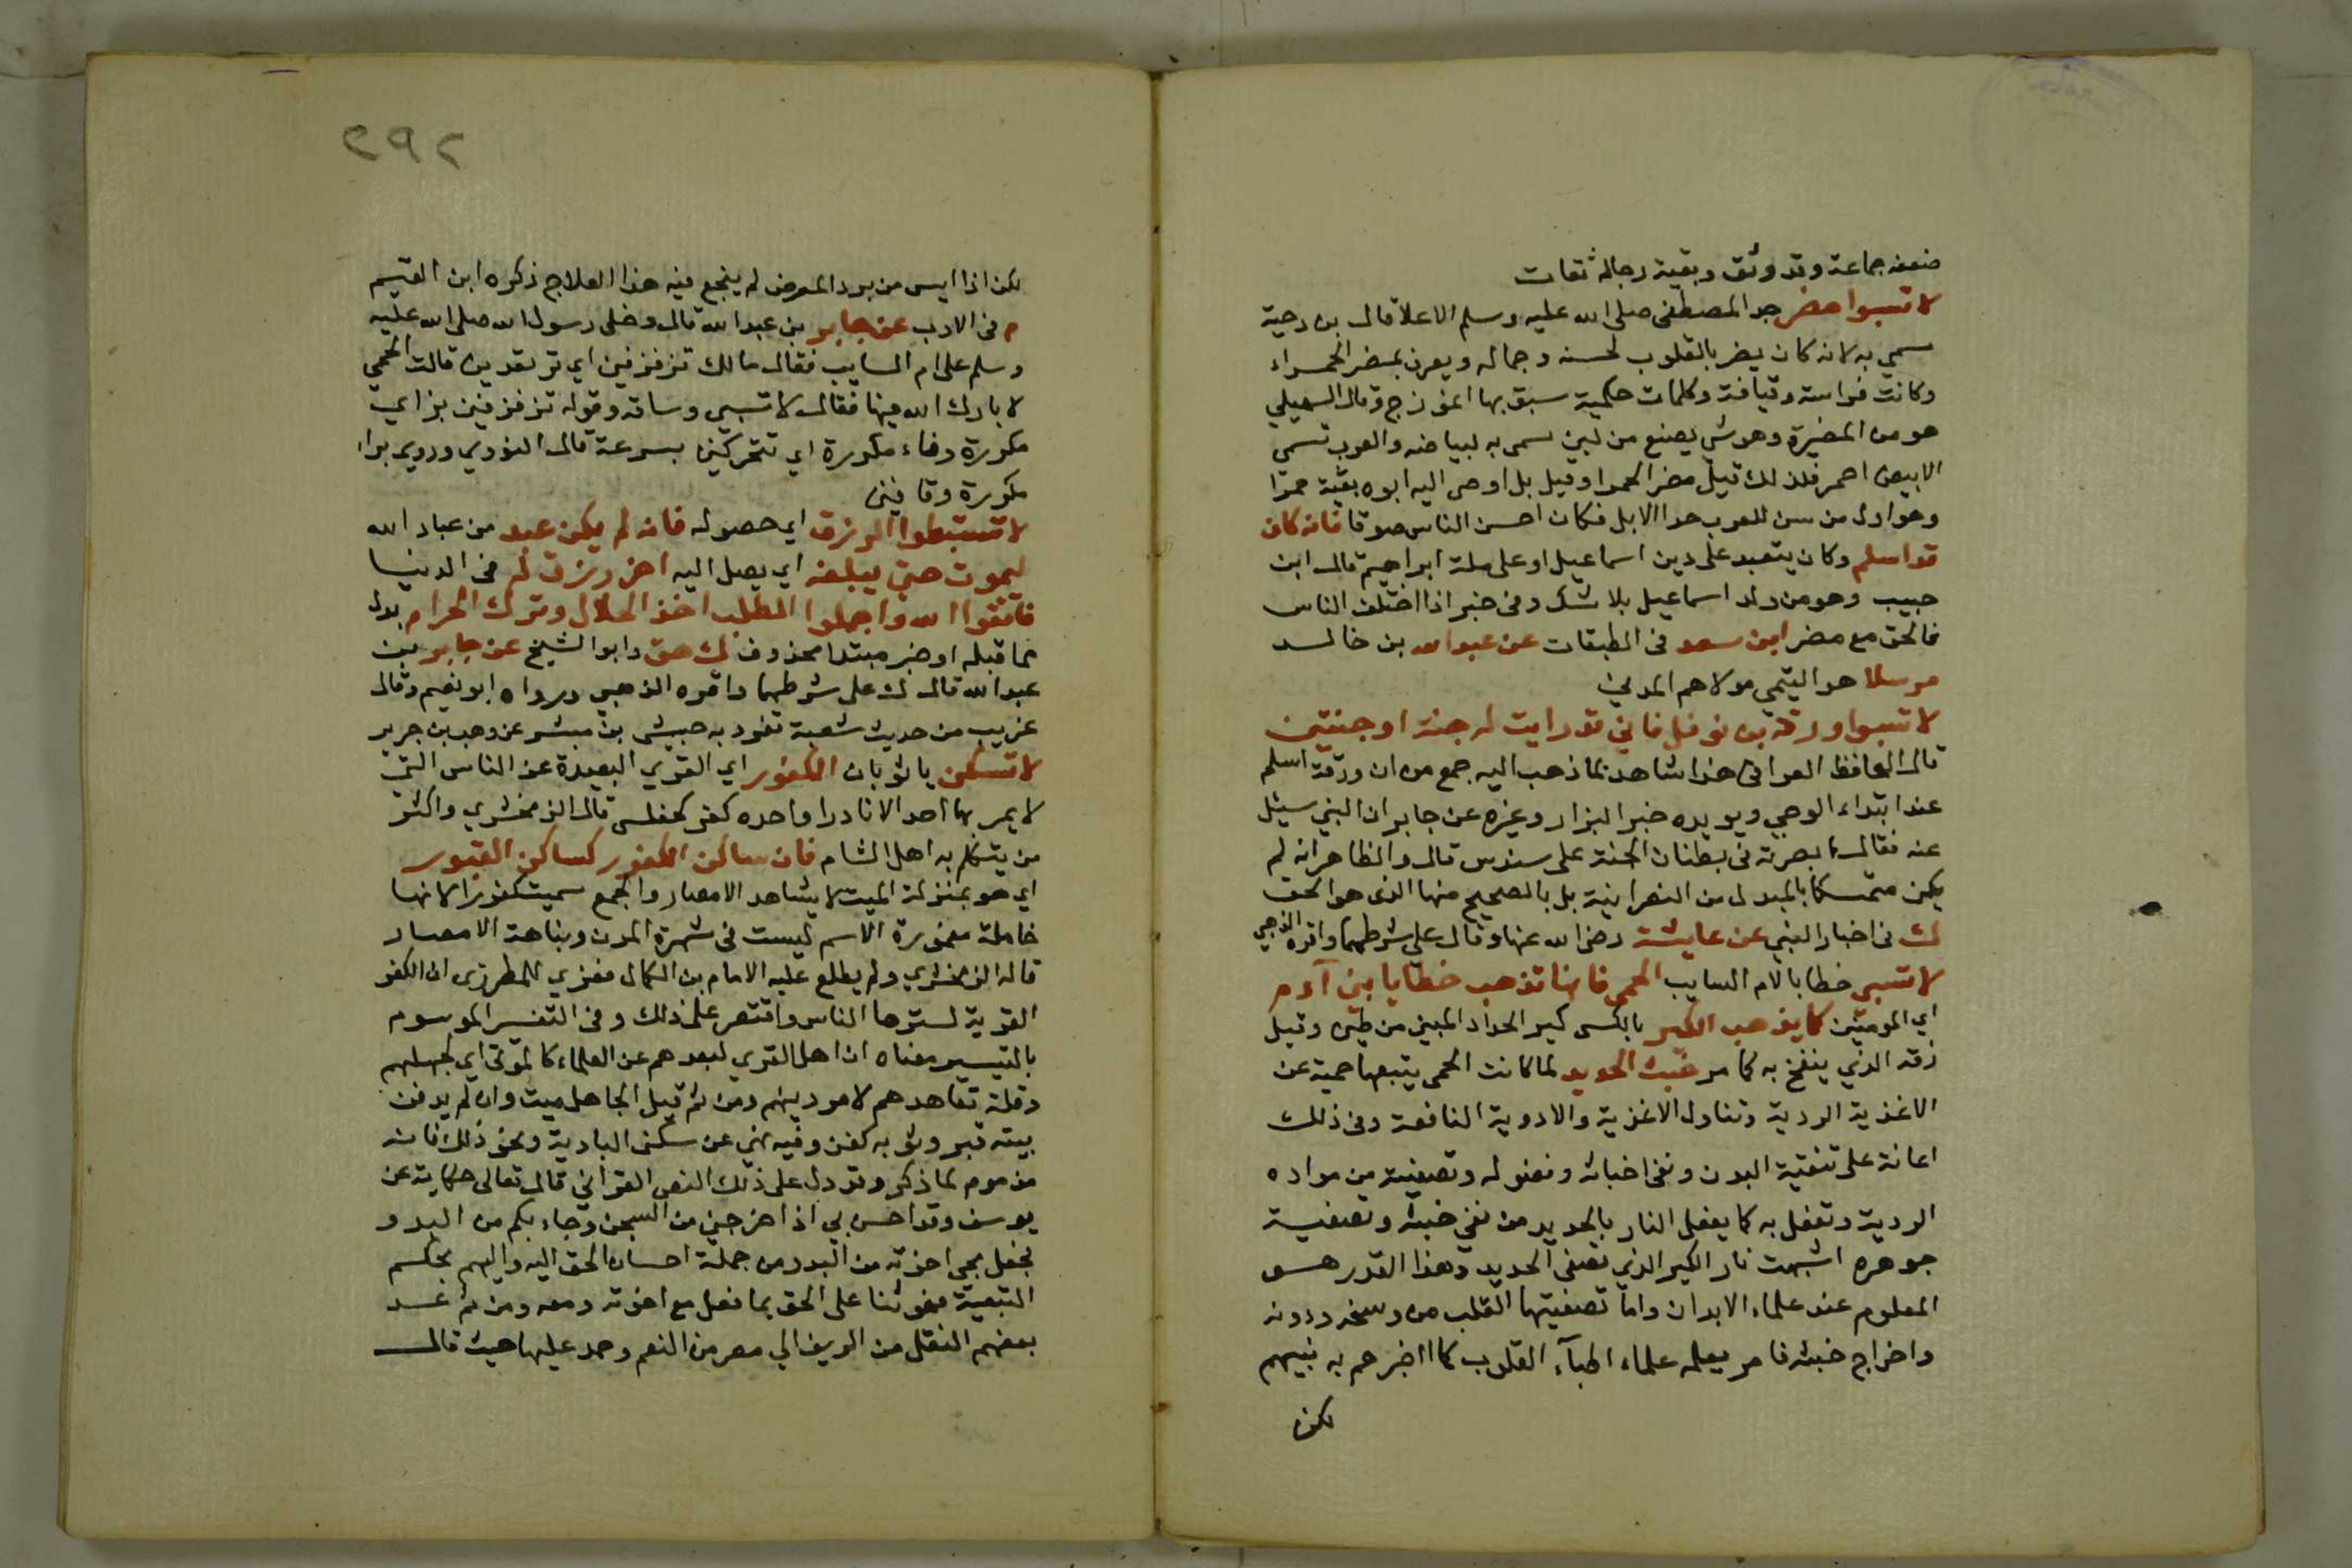 ضعفه جماعة وقد وثق وبقية رجاله ثقات
لا تسبوا مضر جد المصطفى صلى الله عليه وسلم الاعلا قال بن دحية
سمي به لانه كان يضر بالقلوب لحسنه وجماله ويعرف بمضر الحمراء
وكانت فراسة وقيافة وكلمات حكمية سبق بها انموزج وقال السهيلي
هو من المضيرة وهو شي يصنع من لبن سمى به لبياضه والعرب تسمى
الابيض احمر فلذلك قيل مضر الحمرا وقيل بل اوصى اليه ابوه بقبة حمرا
وهو اول من سن للعرب حدا الابل فكان احسن الناس صوتا فانه كان
قد اسلم وكان يتعبد على دين اسماعيل او على ملة ابراهيم قال ابن
حبيب وهو من ولد اسماعيل بلا شك وفى خبر اذا اختلف الناس
فالحق مع مضر ابن سعد فى الطبقات عن عبد الله بن خالد
مرسلا هو التيمي مولاهم المدني
لا تسبوا ورقة بن نوفل فاني قد رايت له جنة او جنتين
قال الحافظ العراقى هذا شاهد لما ذهب اليه جمع من ان ورقة اسلم
عند ابتداء الوحي ويويده خبر البزار وغيره عن جابر ان النبي سئل
عنه فقال ابصرته فى بطنان الجنة على سندس قال والظاهر انه لم
يكن متمسكا بالمبدل من النصرانية بل بالصحيح منها الذى هو الحق
ك فى اخبار النبي عن عايشة رضى الله عنها وقال على شرطهما واقره الذهبي
لا تسبى خطابا لام السايب الحمى فانها تذهب خطايا بني آدم
اي المومنين كما يذهب الكير بالكسر كير الحداد المبني من طين وقيل
زقه الذي ينفخ به كما مر خبث الحديد لما كانت الحمى يتبعها حمية عن
الاغذية الردية وتناول الاغذية والادوية النافعة وفى ذلك
اعانة على تنقية البدن ونفى اخباثه وفضوله وتصفيته من مواده
الردية وتفعل به كما يفعل النار بالحديد من نفي خبثه وتصفية
جوهره اشبهت نار الكير الذي تصفى الحديد وهذا القدر هو
المعلوم عند علماء الابدان واما تصفيتها القلب من وسخه ودرنه
واخراج خبثه فامر يعلمه علماء اطباء القلوب كما اخبرهم به نبيهم
لكن
٢٩٢
لكن اذا ايس من برد المرض لم ينجع فيه هذا العلاج ذكره ابن القيم
م فى الادب عن جابر بن عبد الله قال دخل رسول الله صلى الله عليه
وسلم على ام السايب فقال مالك تزفزفين اي ترتعدين قالت الحمى
لا بارك الله فيها فقال لا تسبى وساقه وقوله تزفزفين بزاي
مكررة وفاء مكررة اي تتحركين بسرعة قال النووي وروي براء
مكررة وقافين
لا تستبطوا الرزق اي حصوله فانه لم يكن عبد من عباد الله
ليموت حتى يبلغه اي يصل اليه اخر رزق له فى الدنيا
فاتقوا الله واجملوا الطلب اخذ الحلال وترك الحرام بدل
مما قبله او خبر مبتدا محذوف ك هق وابو الشيخ عن جابر بن
عبد الله قال ك على شرطهما واقره الذهبي ورواه ابو نعيم وقال
غريب من حديث شعبة تفرد به حبيش بن مبشر عن وهب بن جرير
لا تسكن يا ثوبان الكفور اي القري البعيدة عن الناس التي
لا يمر بها احد الا نادرا واحده كفر كفلس قال الزمخشري واكثر
من يتكلم به اهل الشام فان ساكن الكفور كساكن القبور
اي هو بمنزلة الميت لا يشاهد الامصار والجمع سميت كفورا لانها
خاملة مغمورة الاسم ليست فى شهرة المدن ونباهة الامصار
قاله الزمخشري ولم يطلع عليه الامام بن الكمال فعزي للمطرزى ان الكفر
القرية لسترها الناس واقتصر على ذلك وفى التفسير الموسوم
بالتيسير معناه ان اهل القري لبعدهم عن العلماء كالموتى اي لجهلهم
وقلة تعاهدهم لامر دينهم ومن ثم قيل الجاهل ميت وان لم يدفن
بيته قبر وثوبه كفن وفيه نهي عن سكنى البادية ونحو ذلك فانه
مذموم لما ذكر وقد دل على ذلك النص القراني قال تعالى حكاية عن
يوسف وقد احسن بي اذ اخرجني من السجن وجاء بكم من البدو
فجعل مجى اخوته من البدو من جملة احسان الحق اليه واليهم بحكم
التبعية فهو ثنا على الحق بما فعل مع اخوته ومعه ومن ثم عد
بعضهم النقل من الريف الي مصر من النعم وحمد عليها حيث قال